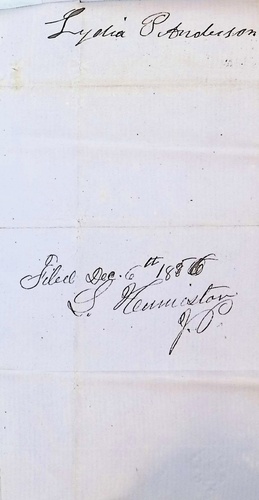 Lydia P. Anderson
Filed Dec. 6th 1856
S. Humiston
J. P.